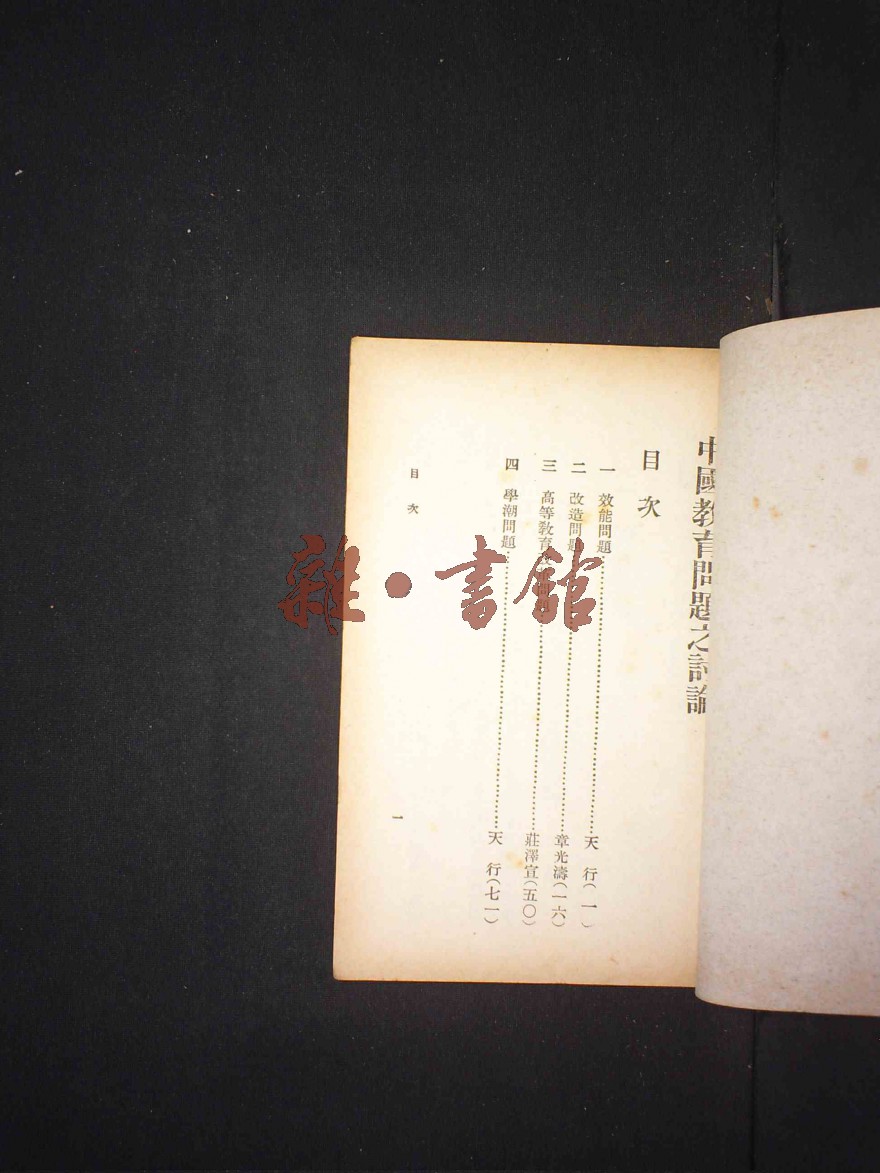 中國教育問題之討論
目次
一 效能問題……天 行(一)
二 改造問題……章光濤(一六)
三 高等教育……莊澤宣(五〇)
四 學潮問題……天 行(七一)
目次
一
雜·書館